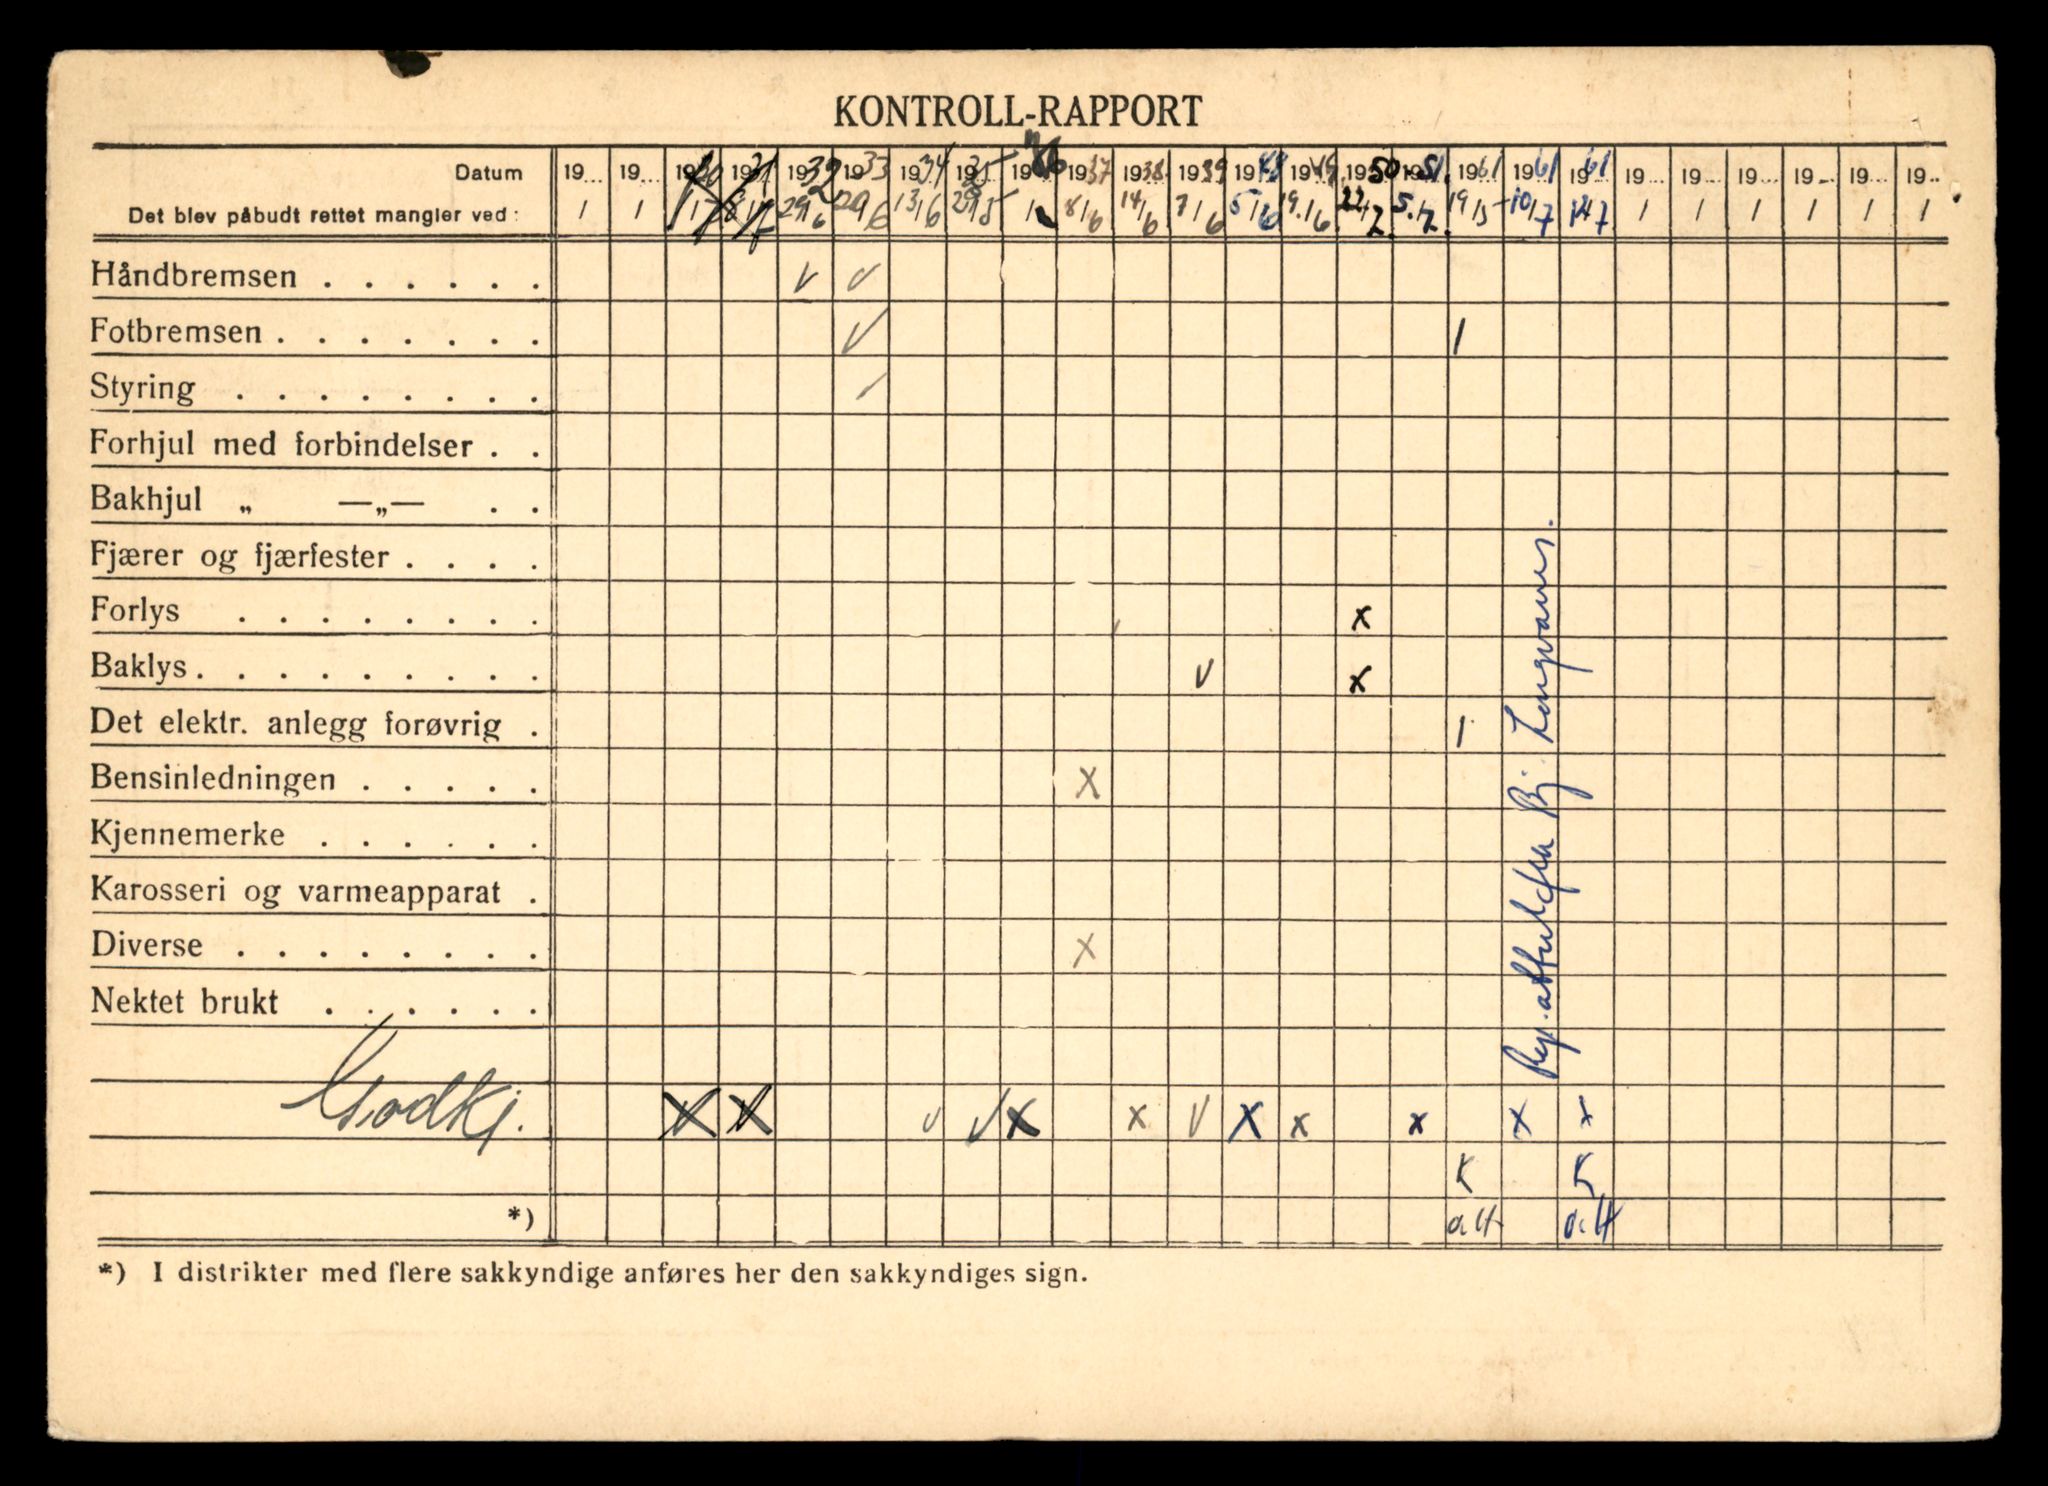 KONTROLL-RAPPORT
Datum 19... 19... 1930 1931 1932 1933 1934 1935 1936 1937 1938 1939 1948 1949 1950 1951 1961 1961 1961 19... 19... 19... 19... 19... 19...
Det blev påbudt rettet mangler ved: / / 29/6 29/6 13/6 29/5 8/6 14/6 7/6 5/6 19./6 22/2. 5./2. 19/5 10/7 / / / / / /
Håndbremsen . . . . . . V V
Fotbremsen . . . . . . . V /
Styring . . . . . . . . ✓
Forhjul med forbindelser . .
Bakhjul „ —„— . .
Fjærer og fjærfester . . . .
Forlys . . . . . . . . x
Baklys . . . . . . . . . V x
Det elektr. anlegg forøvrig . /
Bensinledningen . . . . . X
Kjennemerke . . . . . .
Karosseri og varmeapparat .
Diverse . . . . . . . . X
Nektet brukt . . . . . .
Rep. attest fra Bj.
Godkj. X X V V X x V X x x x x
K K
*)
*) I distrikter med flere sakkyndige anføres her den sakkyndiges sign.